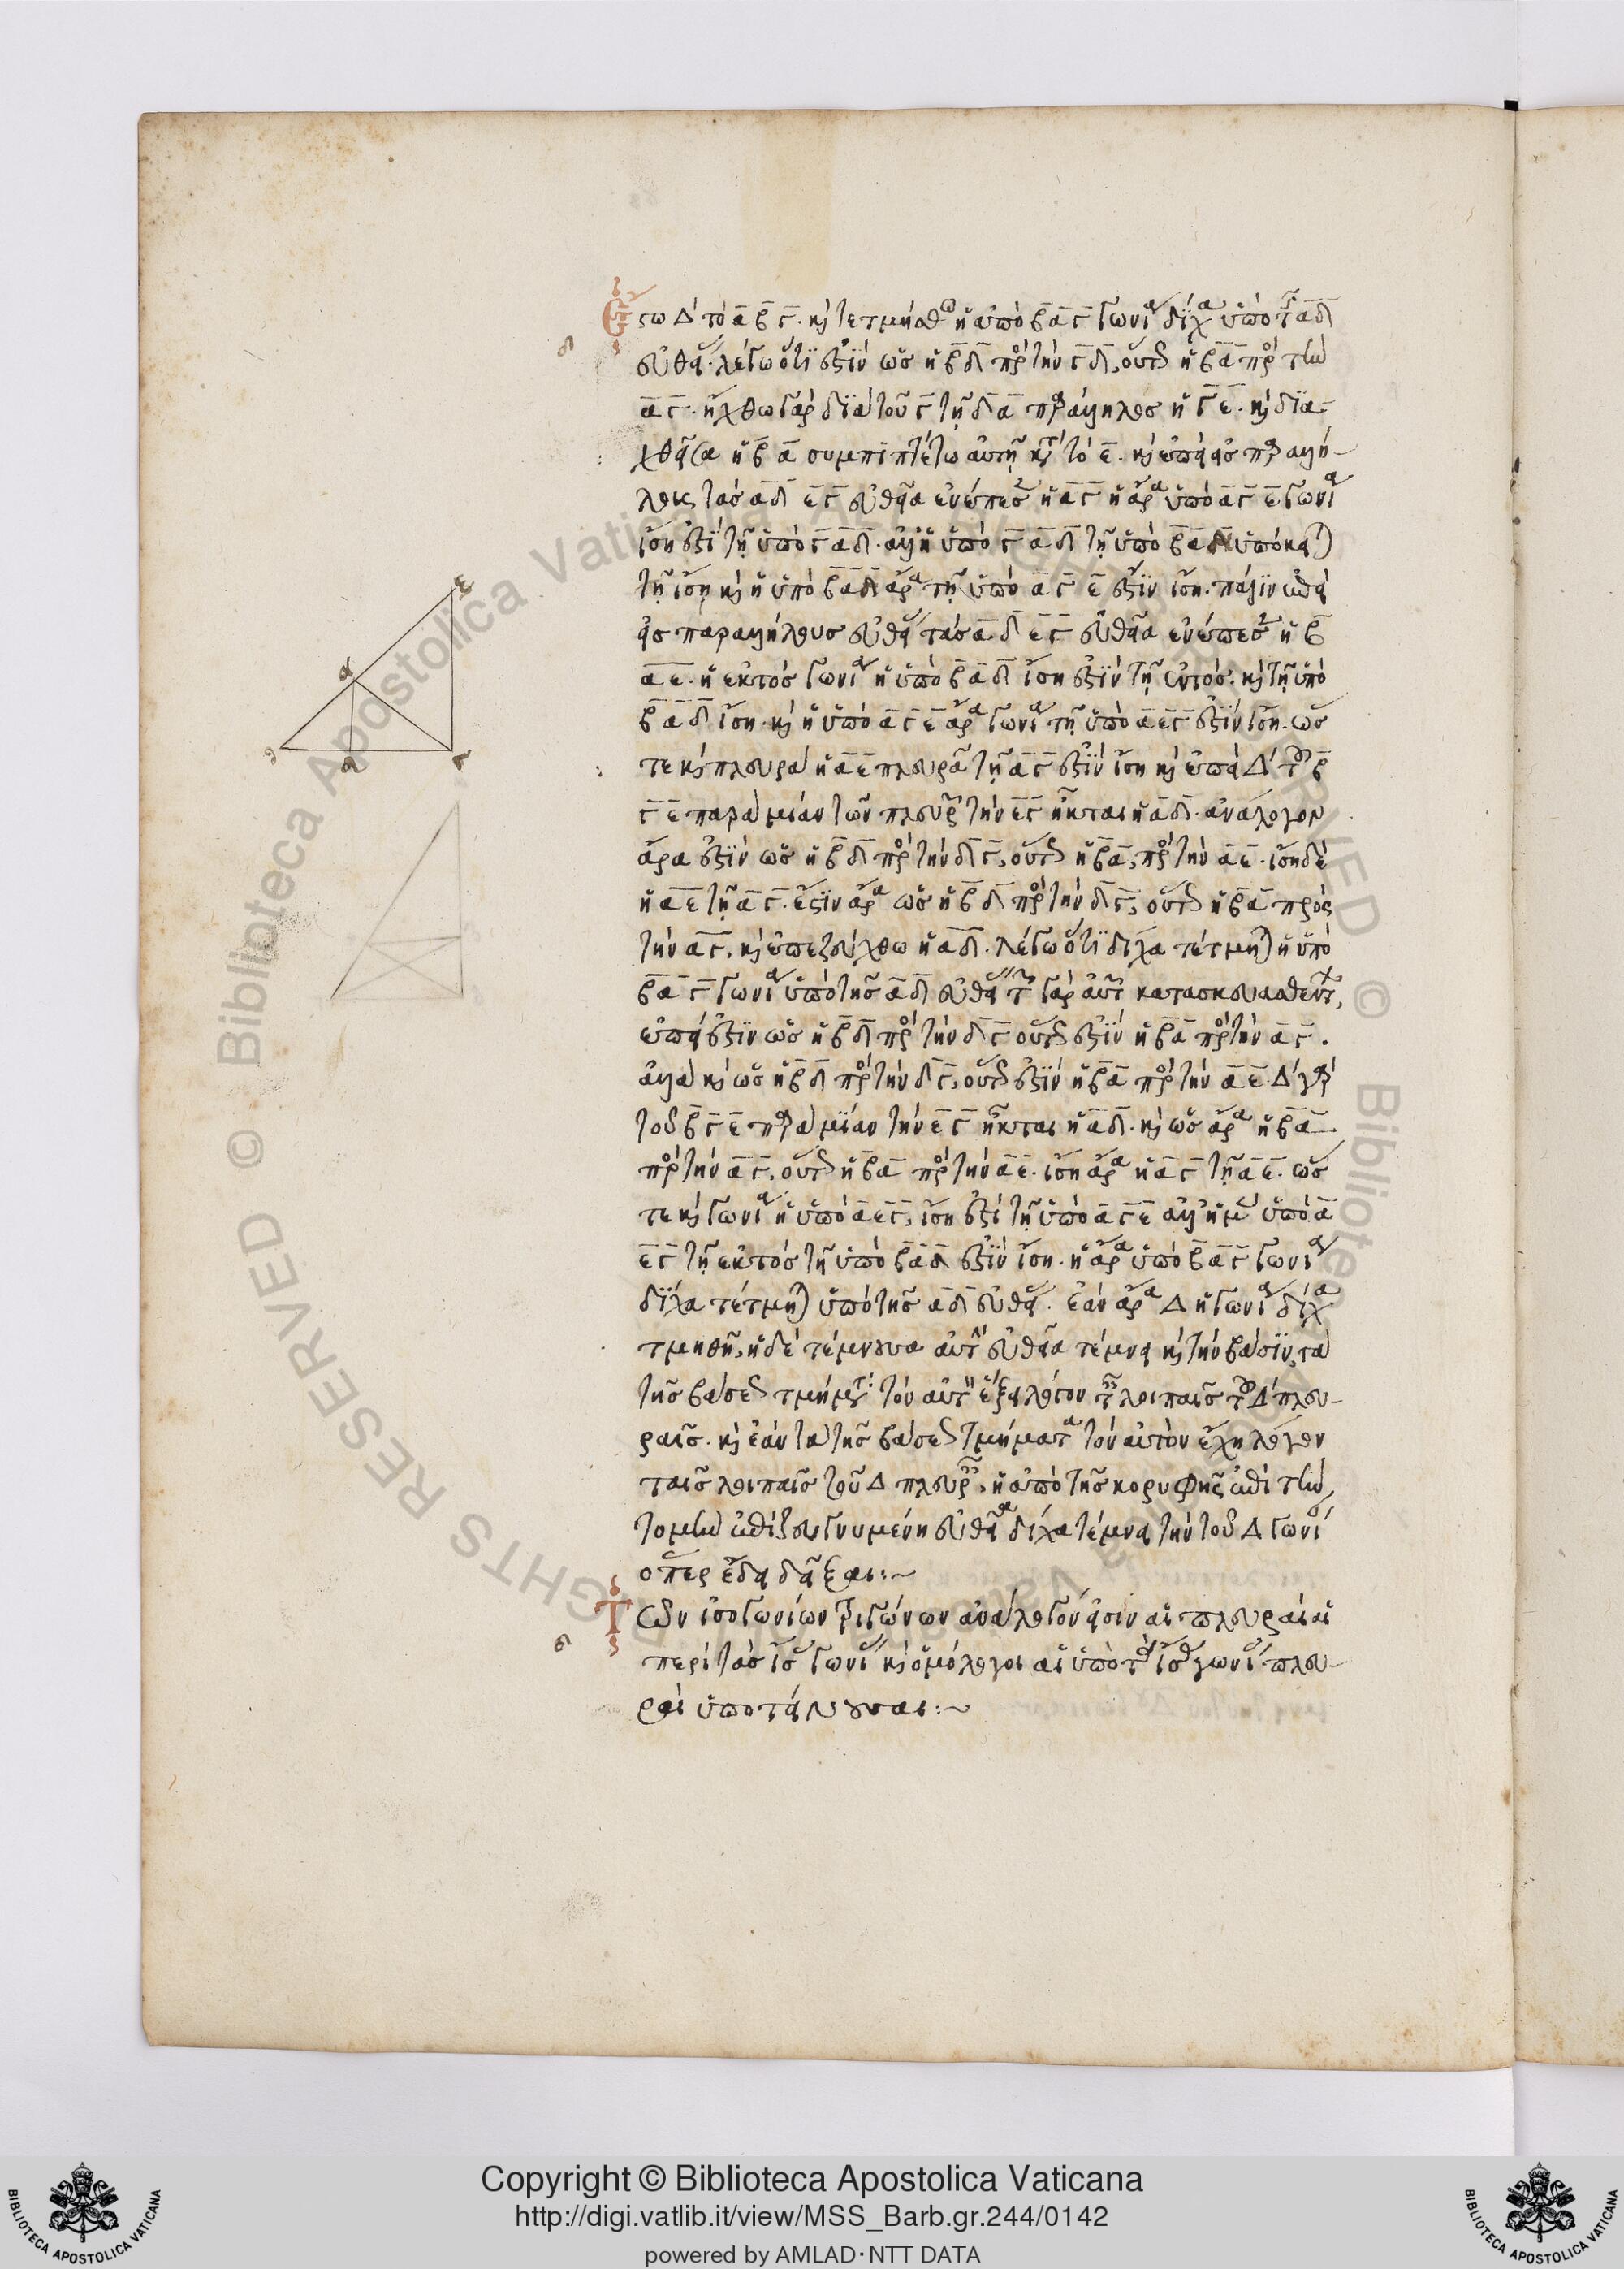 ἔστω Δ τὸ α β γ. καὶ τετμήσθω ἡ ὑπὸ β α γ γωνία δίχα ὑπὸ τῆς α δ
εὐθείας· λέγω ὅτι ἐστὶν ὡς ἡ β δ πρὸς τὴν γ δ, οὕτως ἡ β α πρὸς τὴν
α γ. ἤχθω γὰρ διὰ τοῦ γ τῇ δ α παράλληλος ἡ γ ε. καὶ δια
χθεῖσα ἡ β α συμπιπτέτω αὐτῇ κατὰ τὸ ε. καὶ ἐπεὶ εἰς παραλλή-
λους τὰς α δ ε γ εὐθεῖα ἐνέπεσεν ἡ α γ ἡ ἄρα ὑπὸ α γ ε γωνία
ἴση ἐστὶ τῇ ὑπὸ γ α δ. ἀλλ' ἡ ὑπὸ γ α δ τῇ ὑπὸ β α δ ὑπόκειται
τῇ ἴση καὶ ἡ ὑπὸ β α δ ἄρα τῇ ὑπὸ α γ ε ἐστὶν ἴση. πάλιν ἐπεὶ
εἰς παραλλήλους εὐθείας τὰς α δ ε γ εὐθεῖα ἐνέπεσεν ἡ β
α ε. ἡ ἐκτὸς γωνία ἡ ὑπὸ β α δ ἴση ἐστὶν τῇ ἐντός. καὶ τῇ ὑπὸ
β α δ ἴση. καὶ ἡ ὑπὸ α γ ε ἄρα γωνία τῇ ὑπὸ α ε γ ἐστὶν ἴση. ὥσ
τε καὶ πλευρὰ ἡ α ε πλευρᾷ τῇ α γ ἐστὶν ἴση καὶ ἐπεὶ Δ τοῦ β
γ ε παρὰ μίαν τῶν πλευρῶν τὴν ε γ ἦκται ἡ α δ. ἀνάλογον
ἄρα ἐστὶν ὡς ἡ β δ πρὸς τὴν δ γ, οὕτως ἡ β α, πρὸς τὴν α ε. ἴση δὲ
ἡ α ε τῇ α γ. ἔστιν ἄρα ὡς ἡ β δ πρὸς τὴν δ γ, οὕτως ἡ β α πρὸς
τὴν α γ. καὶ ἐπεζεύχθω ἡ α δ. λέγω ὅτι δίχα τέτμηται ἡ ὑπὸ
β α γ γωνία ὑπὸ τῆς α δ εὐθείας τῶν γὰρ αὐτῶν κατασκευασθέντων,
ἐπεί ἐστιν ὡς ἡ β δ πρὸς τὴν δ γ οὕτως ἐστὶν ἡ β α πρὸς τὴν α γ.
ἀλλὰ καὶ ὡς ἡ β δ πρὸς τὴν δ γ, οὕτως ἐστὶν ἡ β α πρὸς τὴν α ε. Δ γὰρ
τοῦ β γ ε παρὰ μίαν τὴν ε γ ἦκται ἡ α δ. καὶ ὡς ἄρα ἡ β α
πρὸς τὴν α γ, οὕτως ἡ β α πρὸς τὴν α ε. ἴση ἄρα ἡ α γ τῇ α ε. ὥσ
τε καὶ γωνία ἡ ὑπὸ α ε γ, ἴση ἐστὶ τῇ ὑπὸ α γ ε ἀλλ' ἡ μὲν ὑπὸ α
ε γ τῇ ἐκτὸς τῇ ὑπὸ β α δ ἐστὶν ἴση. ἡ ἄρα ὑπὸ β α γ γωνία
δίχα τέτμηται ὑπὸ τῆς α δ εὐθείας. ἐὰν ἄρα Δ ἡ γωνία δίχα
τμηθῇ, ἡ δὲ τέμνουσα αὐτὴν εὐθεῖα τέμνει καὶ τὴν βάσιν, τὰ
τῆς βάσεως τμήματα τὸν αὐτὸν ἕξει λόγον ταῖς λοιπαῖς τοῦ Δ πλευ-
ραῖς. καὶ ἐὰν τὰ τῆς βάσεως τμήματα τὸν αὐτὸν ἔχῃ λόγον
ταῖς λοιπαῖς τοῦ Δ πλευραῖς, ἡ ἀπὸ τῆς κορυφῆς ἐπὶ τὴν
τομὴν ἐπιζευγνυμένη εὐθεῖα δίχα τέμνει τὴν τοῦ Δ γωνίαν
ὅπερ ἔδει δεῖξαι:~
Τῶν ἰσογωνίων τριγώνων ἀνάλογόν εἰσιν αἱ πλευραὶ αἱ
περὶ τὰς ἴσας γωνίας καὶ ὁμόλογοι αἱ ὑπὸ τὰς ἴσας γωνίας πλευ-
ραὶ ὑποτείνουσαι:~
α
ε
β
δ
γ
Copyright © Biblioteca Apostolica Vaticana
http://digi.vatlib.it/view/MSS_Barb.gr.244/0142
powered by AMLAD·NTT DATA
BIBLIOTECA APOSTOLICA VATICANA
BIBLIOTECA APOSTOLICA VATICANA